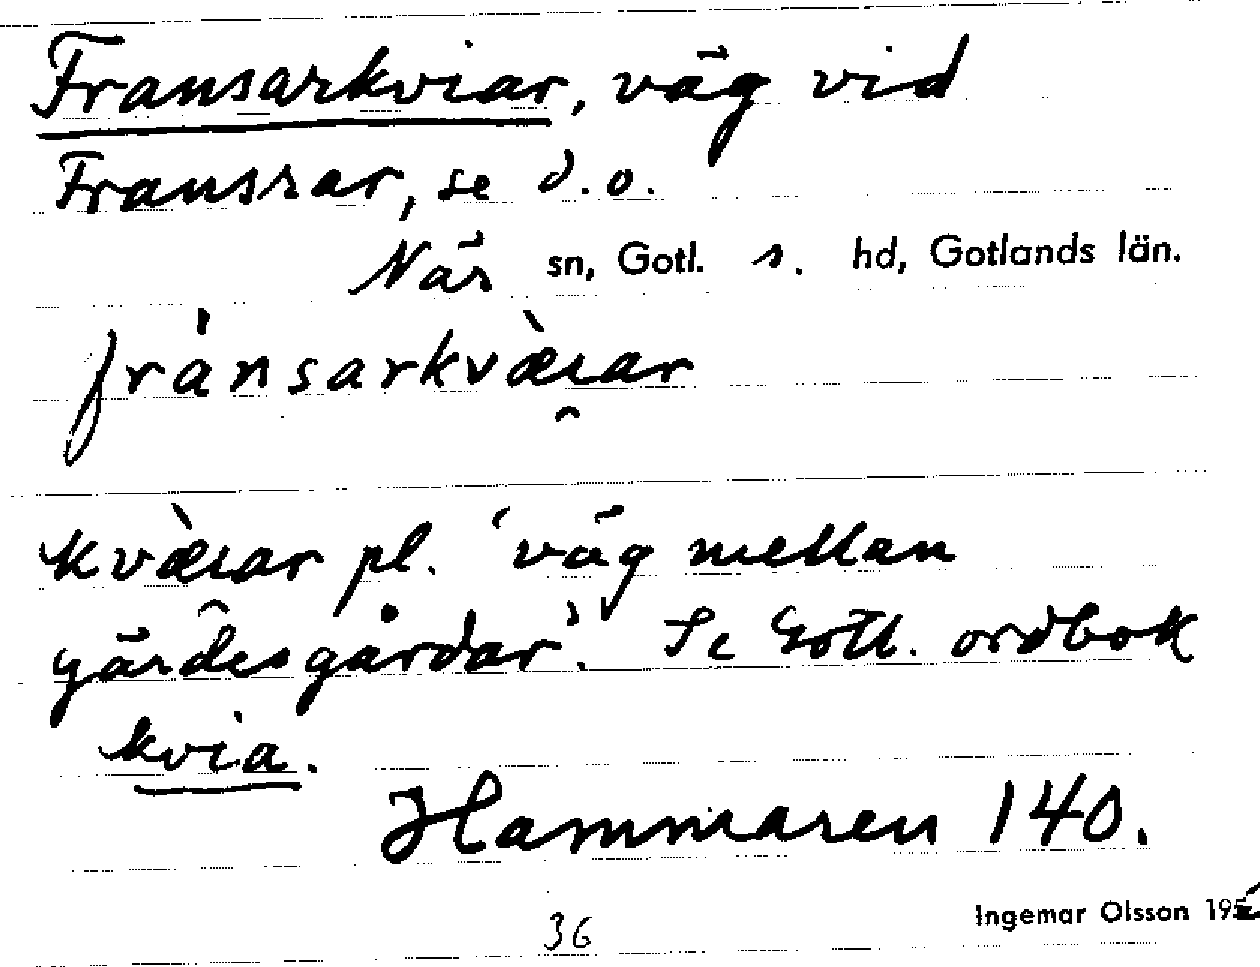 Fransarkviar, väg vid
Fransrar, se d.o.
När sn, Gotl. s. hd, Gotlands län.
fránsarkvæ̀ı̯ar
kvæ̀ı̯ar pl. 'väg mellan
gärdesgårdar'. Se Gotl. ordbok
kvia.
Hammaren 140.
36
Ingemar Olsson